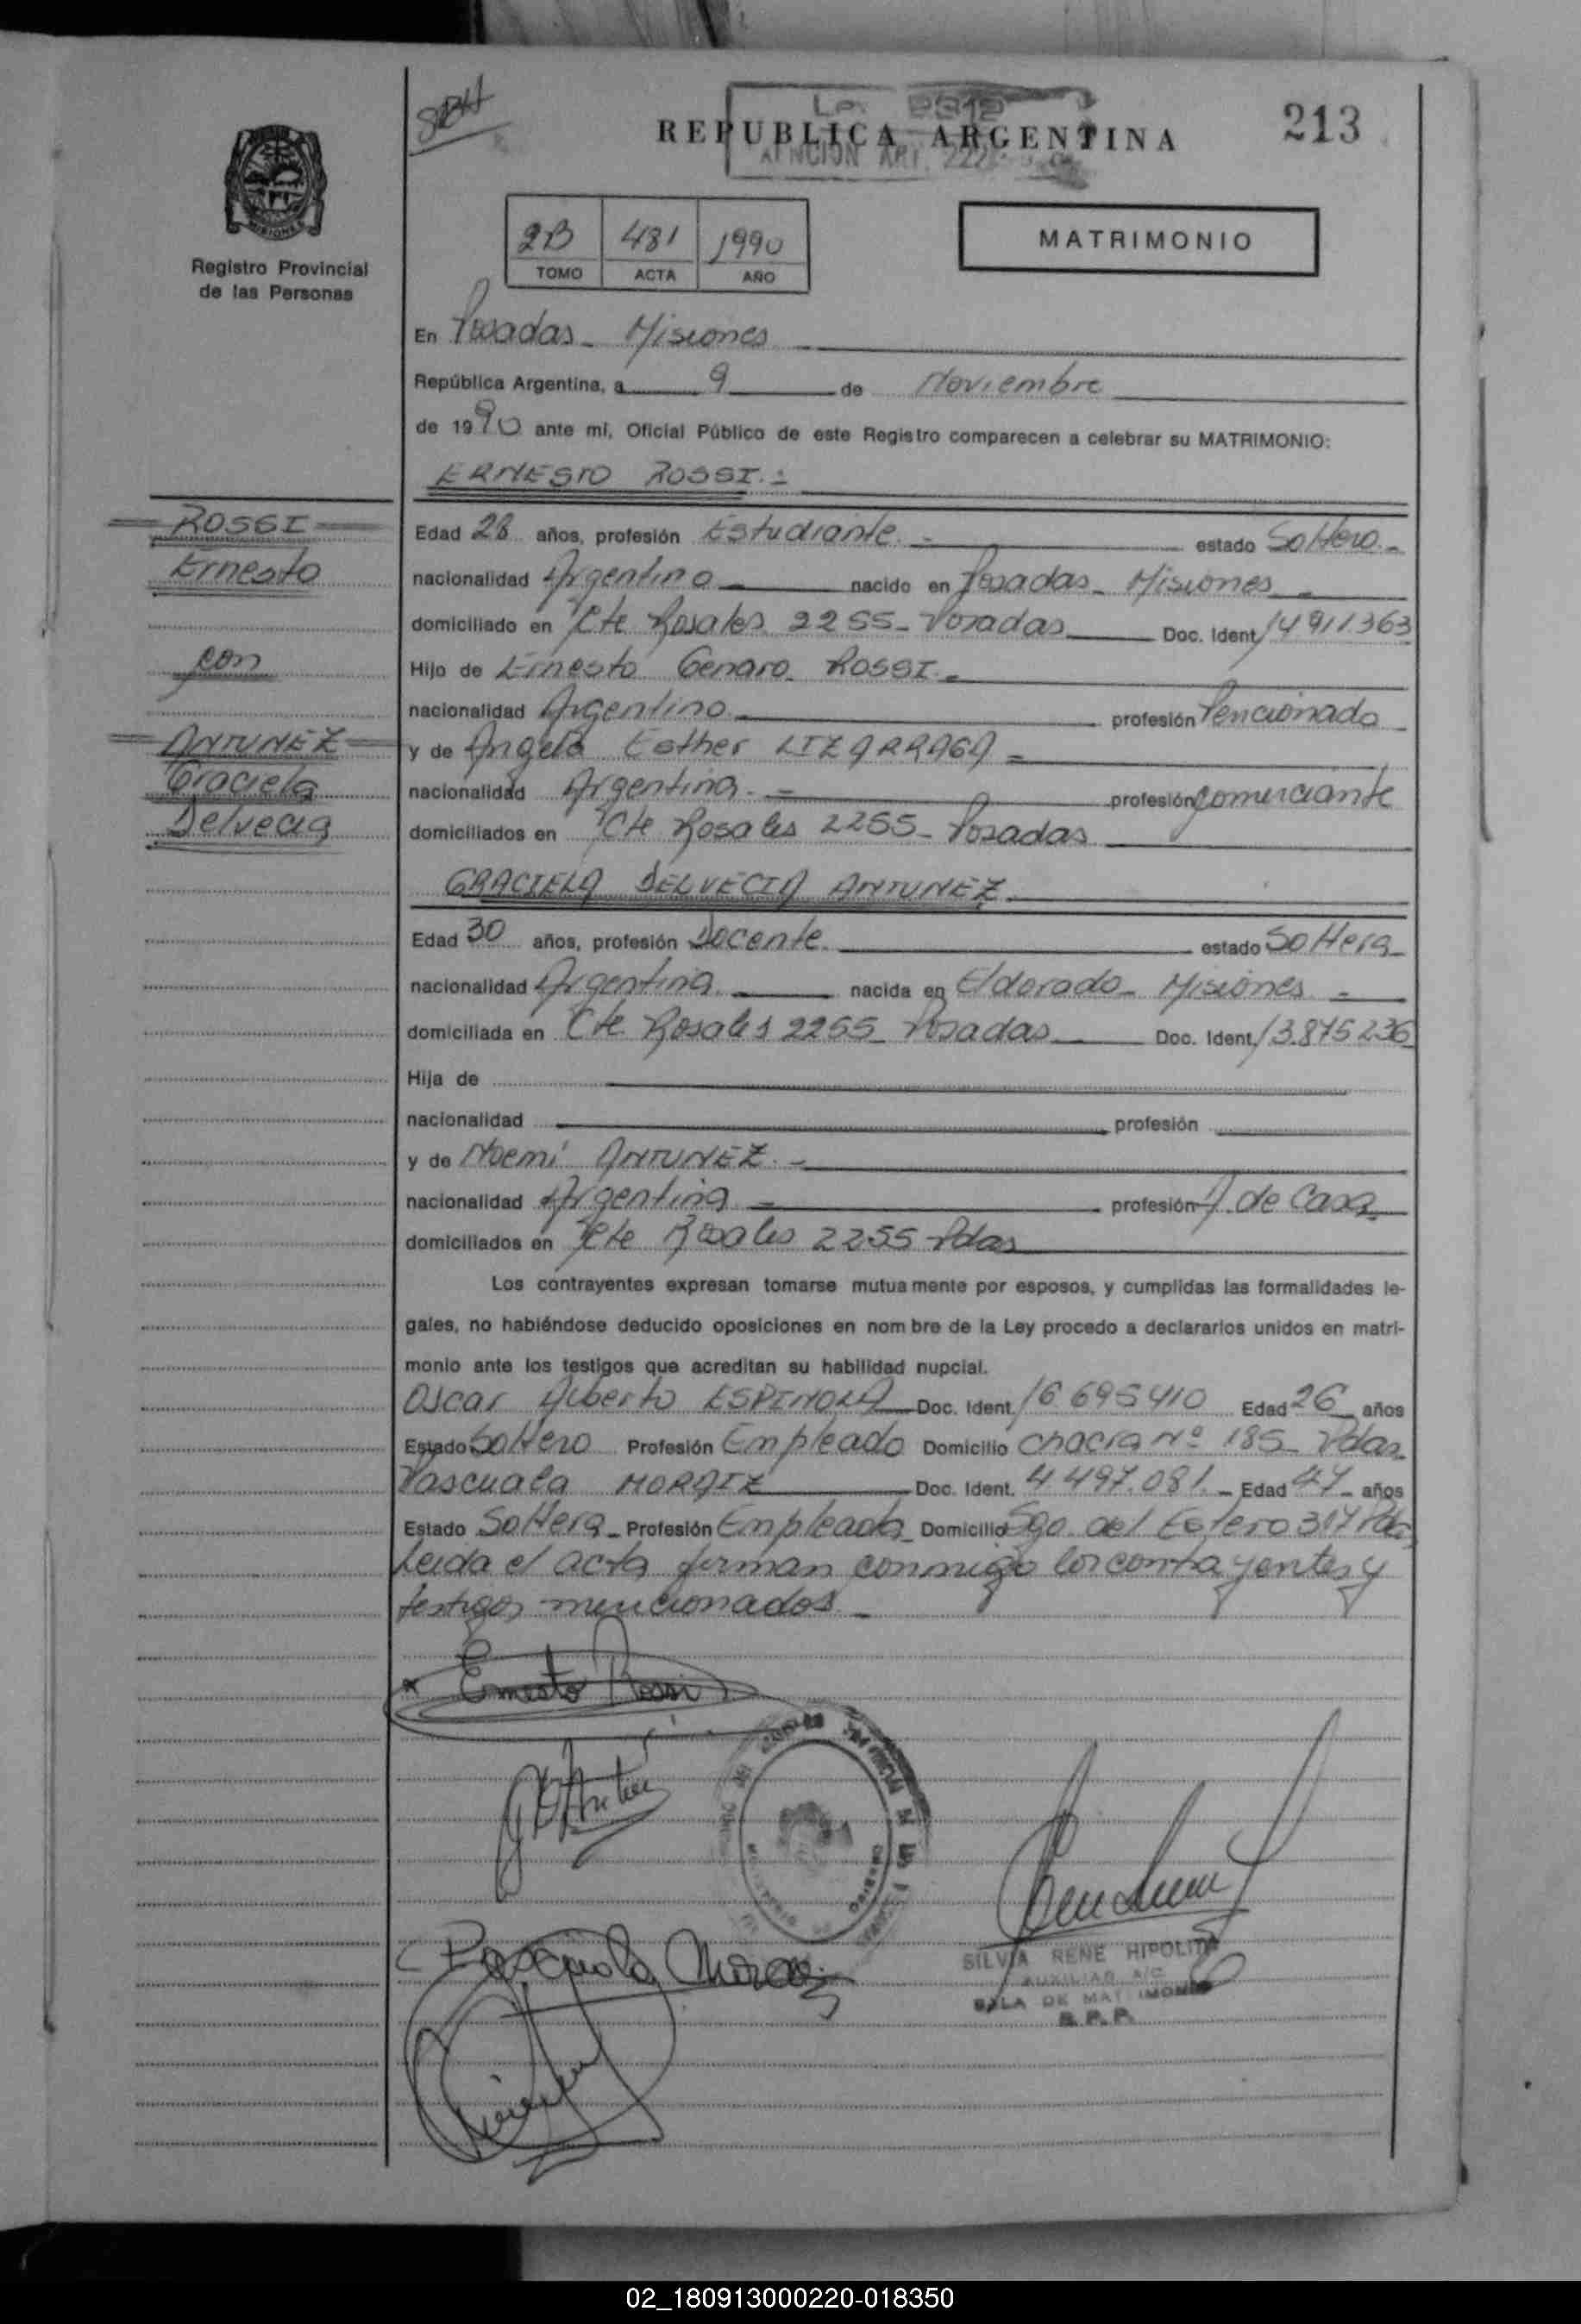 213
REPUBLICA ARGENTINA
Registro Provincial
de las Personas
2B 481 1990
TOMO ACTA AÑO
MATRIMONIO
En Posadas - Misiones
República Argentina, a 9 de Noviembre
de 1990 ante mí, Oficial Público de este Registro comparecen a celebrar su MATRIMONIO:
ERNESTO ROSSI.-
ROSSI
Ernesto
con
ANTUNEZ
Graciela
Delvecia
Edad 28 años, profesión Estudiante.- estado Soltero.-
nacionalidad Argentino nacido en Posadas - Misiones -
domiciliado en Cte Rosales 2255 - Posadas Doc. Ident. 14911363
Hijo de Ernesto Genaro ROSSI.-
nacionalidad Argentino profesión Pencionado
y de Angela Esther LIZARRAGA -
nacionalidad Argentina.- profesión Comerciante
domiciliados en Cte Rosales 2255 - Posadas
GRACIELA DELVECIA ANTUNEZ
Edad 30 años, profesión Docente. estado Soltera
nacionalidad Argentina nacida en Eldorado - Misiones -
domiciliada en Cte Rosales 2255 - Posadas Doc. Ident. 13.875236
Hija de
nacionalidad profesión
y de Noemí ANTUNEZ.-
nacionalidad Argentina - profesión A. de Casa
domiciliados en Cte Rosales 2255 - Pdas
Los contrayentes expresan tomarse mutuamente por esposos, y cumplidas las formalidades le-
gales, no habiéndose deducido oposiciones en nombre de la Ley procedo a declararlos unidos en matri-
monio ante los testigos que acreditan su habilidad nupcial.
Oscar Alberto ESPINOLA Doc. Ident. 16 695410 Edad 26 años
Estado Soltero Profesión Empleado Domicilio chacra Nº 185 - Pdas
Pascuala MORAIZ Doc. Ident. 4 497.081.- Edad 47 años
Estado Soltera - Profesión Empleada Domicilio Sgo. del Estero 317 Pdas
Leida el acta firman conmigo los contrayentes y
testigos mencionados -
Ernesto Rossi
Pascuala Moraiz
SILVIA RENE HIPOLITA
AUXILIAR A/C
SALA DE MATRIMONIO
R.P.P.
02_180913000220-018350